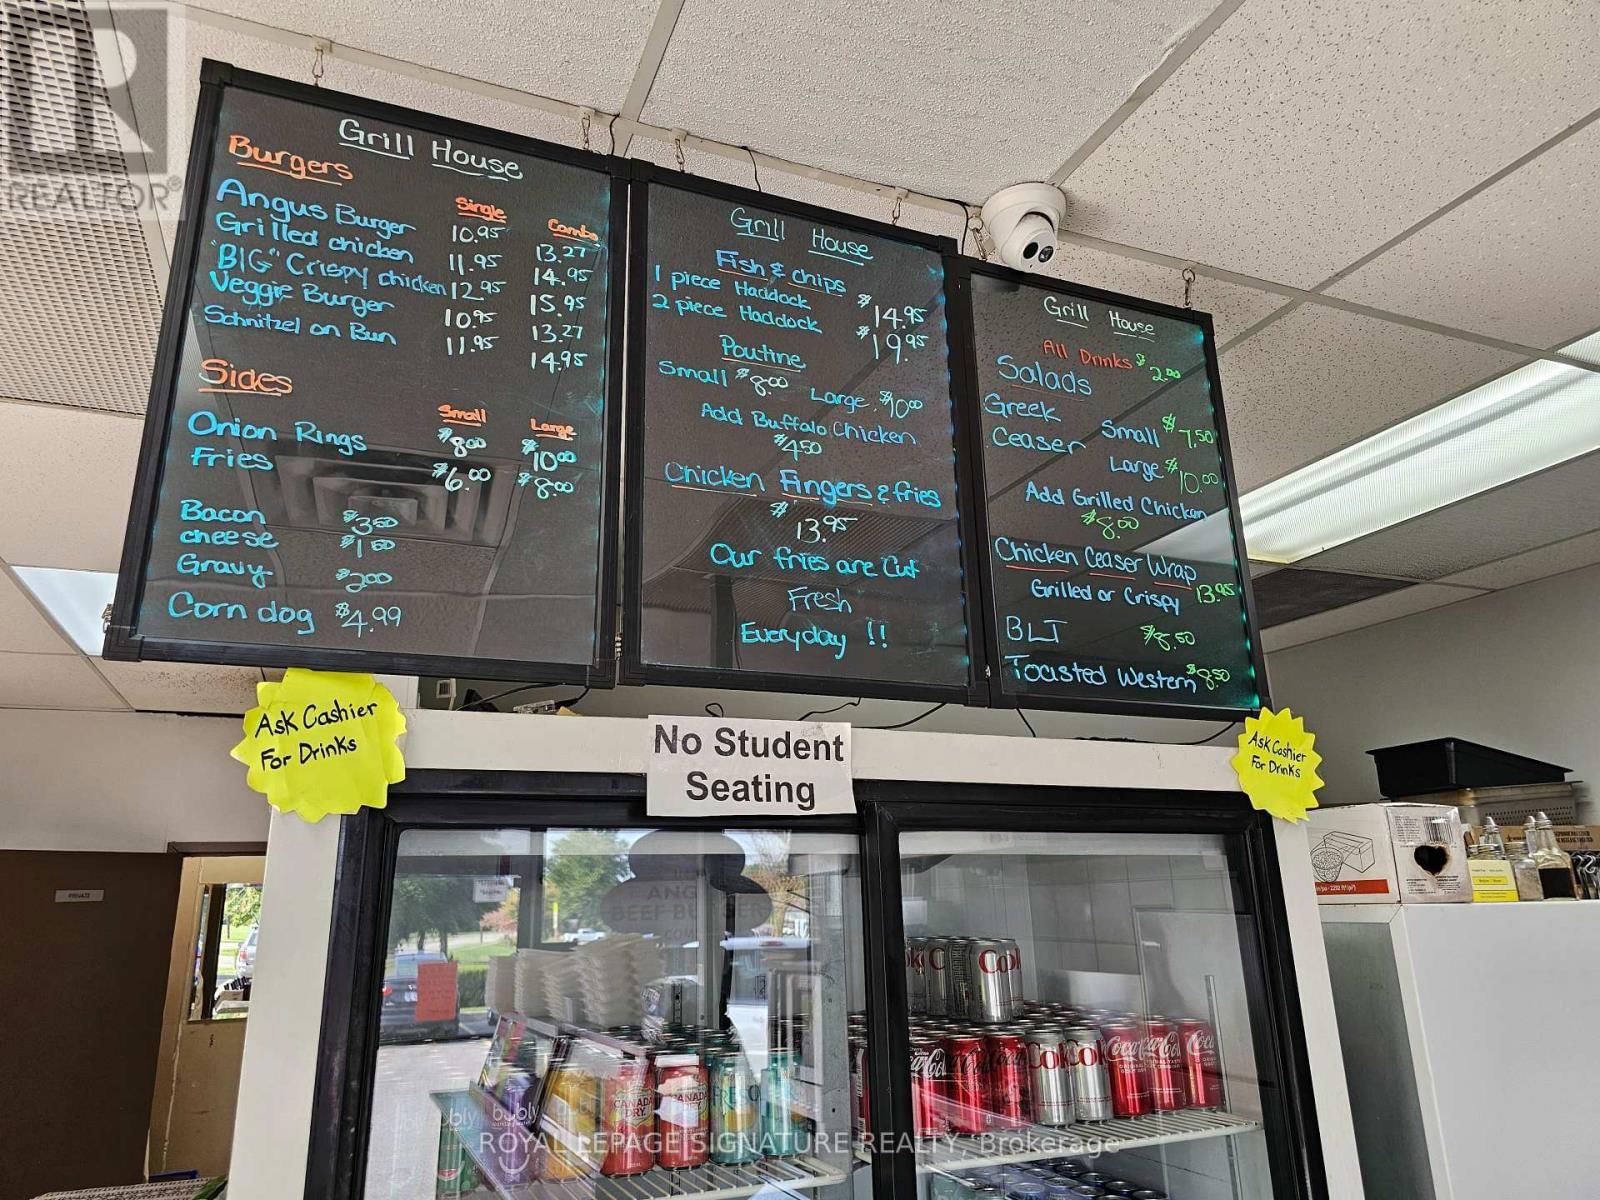 REALTOR®
Grill House
Burgers
Single Combo
Angus Burger 10.95 13.27
Grilled chicken 11.95 14.95
"BIG" Crispy chicken 12.95 15.95
Veggie Burger 10.95 13.27
Schnitzel on Bun 11.95 14.95
Sides
Small Large
Onion Rings $8.00 $10.00
Fries $6.00 $8.00
Bacon $3.50
cheese $1.50
Gravy $2.00
Corn dog $4.99
Grill House
Fish & chips
1 piece Haddock $14.95
2 piece Haddock $19.95
Poutine
Small $8.00 Large $10.00
Add Buffalo Chicken
$4.50
Chicken Fingers & fries
$13.95
Our fries are Cut
Fresh
Everyday !!
Grill House
All Drinks $2.00
Salads
Greek
Ceaser Small $7.50
Large $10.00
Add Grilled Chicken
$8.00
Chicken Ceaser Wrap
Grilled or Crispy 13.95
BLT $8.50
Toasted Western $8.50
Ask Cashier
For Drinks
No Student
Seating
Ask Cashier
For Drinks
PRIVATE
bubly
CANADA
DRY
CANADA
DRY
Coca-Cola
ROYAL LEPAGE SIGNATURE REALTY, Brokerage